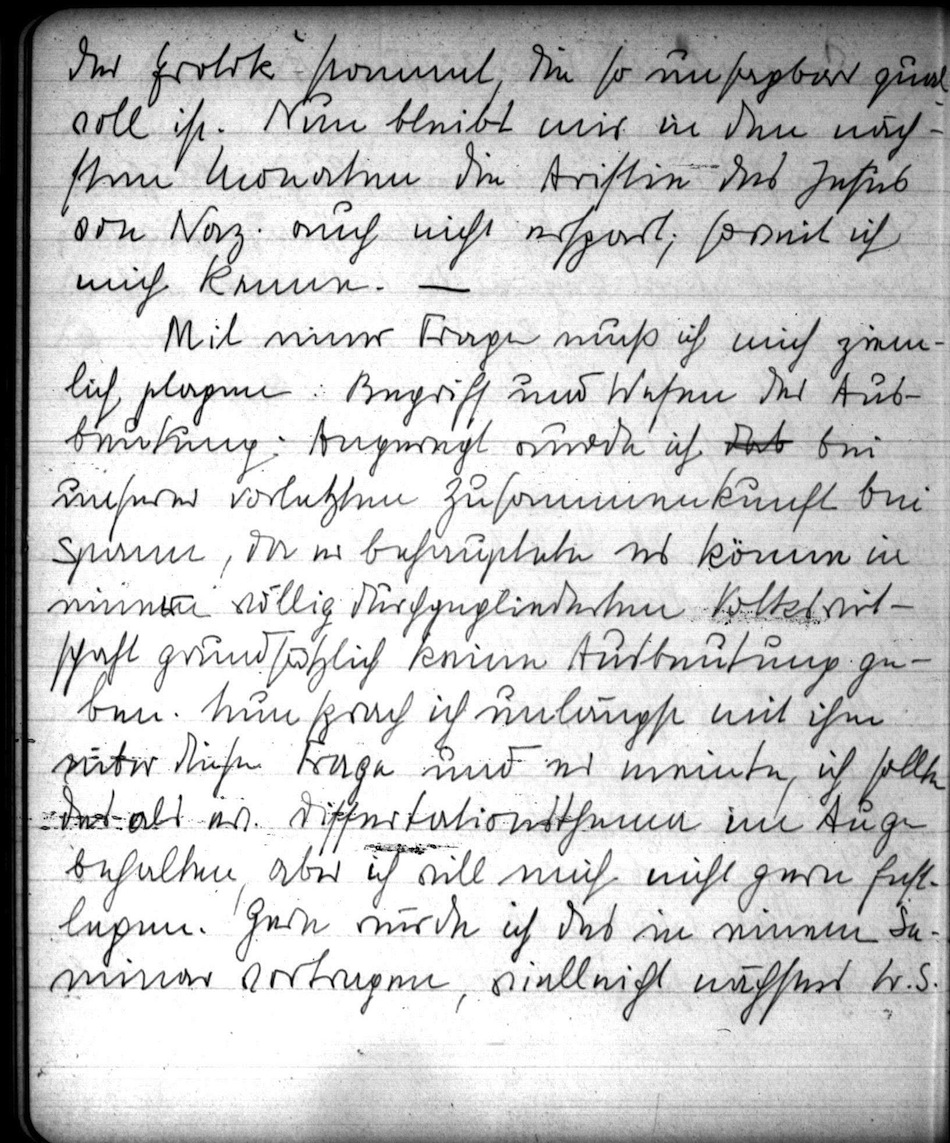 der Erotik stammt, die so unsagbar qual-
voll ist. Nun bleibt mir in den näch-
sten Monaten die des Jesus
von Naz. auch nicht erspart, soweit ich
mich kenne. —
Mit einer Frage muß ich mich ziem-
lich plagen: Begriff und Wesen der Aus-
beutung. Angeregt wurde ich das bei
unserer vorletzten Zusammenkunft bei
Spann, da er behauptete es könne in
einer völlig durchgegliederten Volkswirt-
schaft grundsätzlich keine Ausbeutung ge-
ben. Nun sprach ich unlängst mit ihm
über diese Frage und er meinte, ich sollte
das als ev. Dissertationsthema im Auge
behalten, aber ich will mich nicht gern fest-
legen. Gern würde ich das in einem Se-
minar vortragen, vielleicht nächstes W.S.